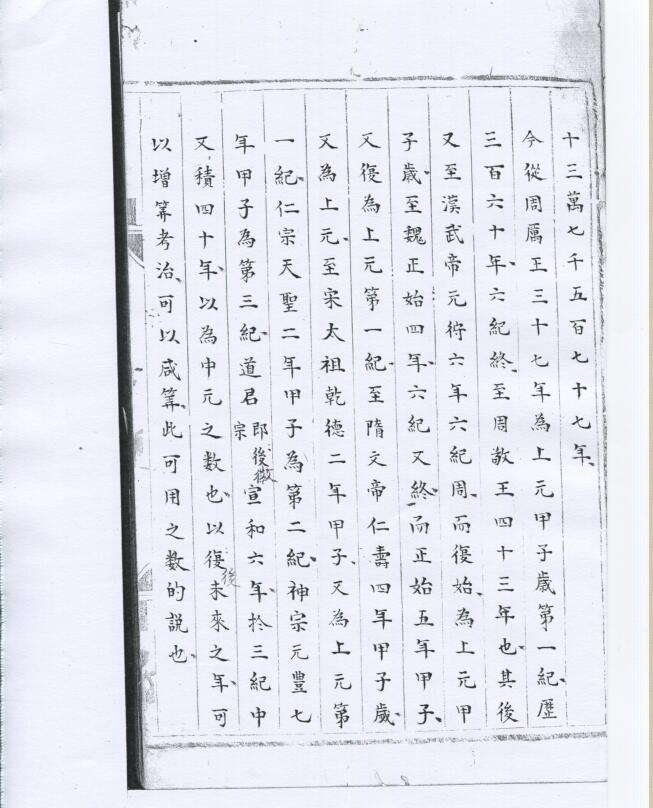 十三萬七千五百七十七年、
今從周厲王三十七年為上元甲子歲第一紀、歷
三百六十年、六紀終、至周敬王四十三年也、其後
又至漢武帝元狩六年六紀周、而復始、為上元甲
子歲、至魏正始四年、六紀又終、而正始五年甲子、
又復為上元第一紀、至隋文帝仁壽四年甲子歲、
又為上元、至宋太祖乾德二年甲子、又為上元第
一紀、仁宗天聖二年甲子為第二紀、神宗元豐七
年甲子為第三紀、道君即後徽宗宣和六年、於三紀中
又積四十年、以為中元之數也、以復後未來之年、可
以增筭考治、可以咸筭、此可用之數的說也、